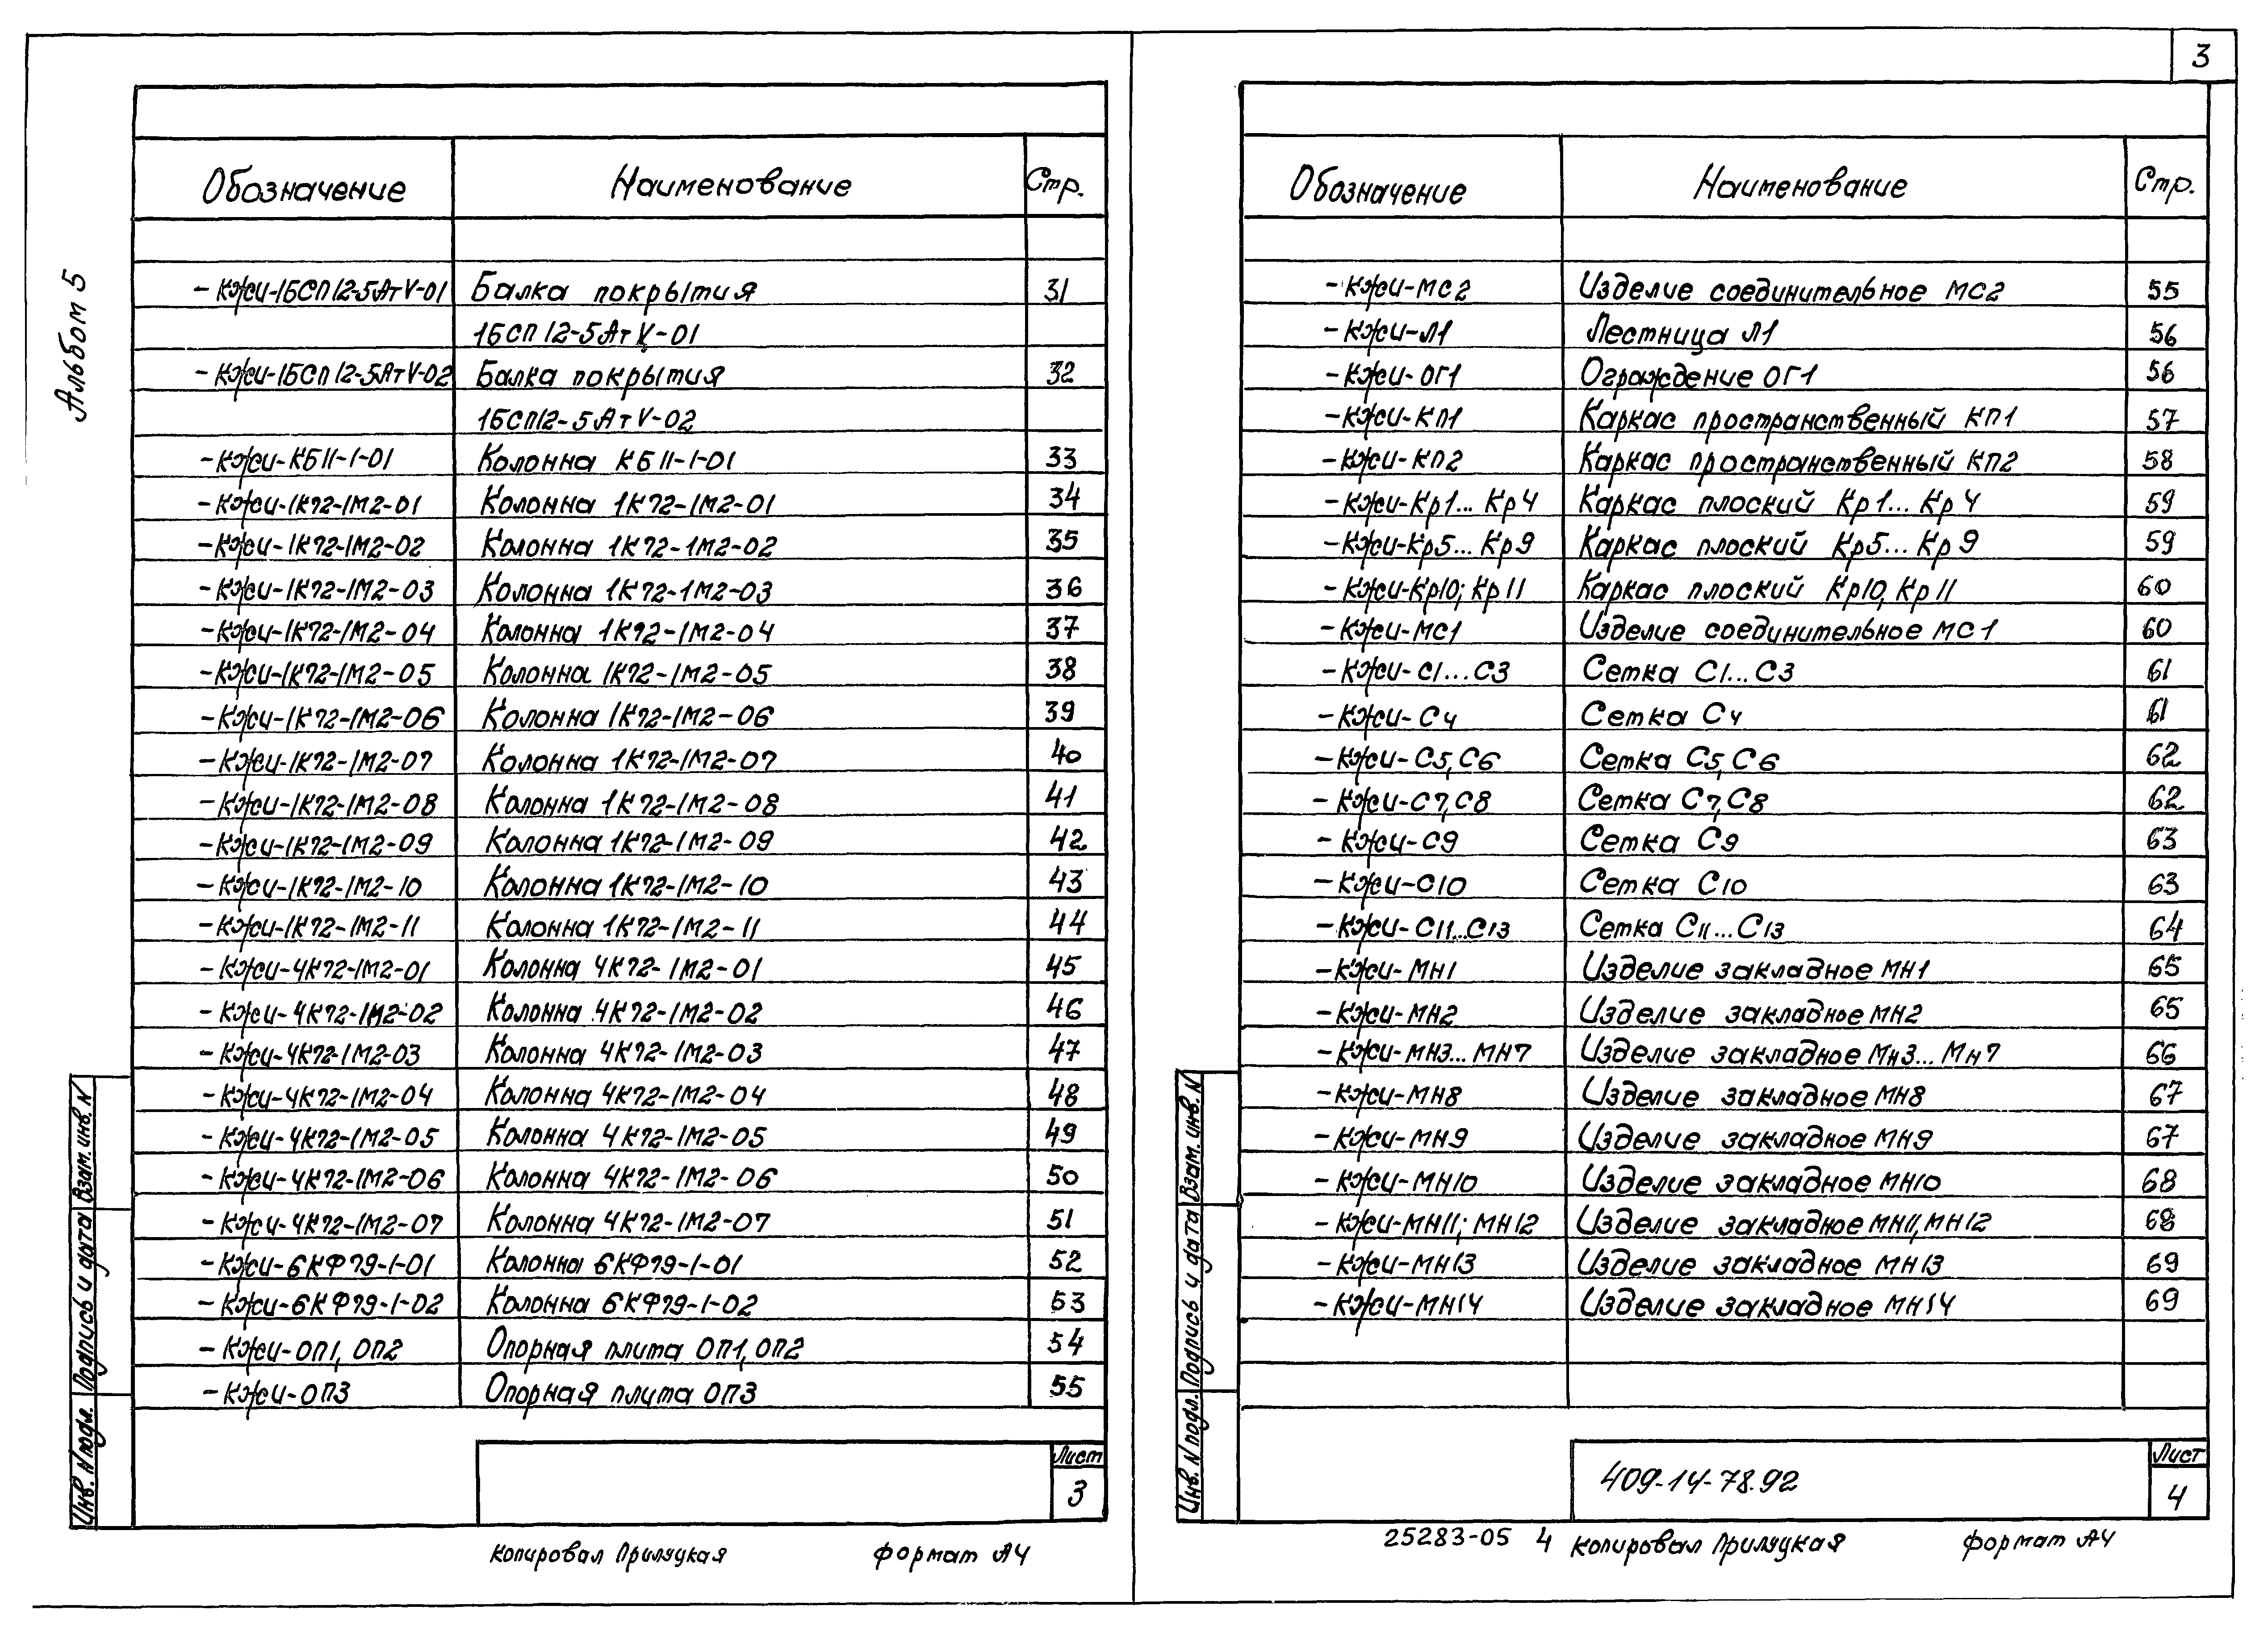 3
Альбом 5
Обозначение Наименование Стр.
-КЖИ-1БСП12-5АтV-01 Балка покрытия 31
1БСП12-5АтV-01
-КЖИ-1БСП12-5АтV-02 Балка покрытия 32
1БСП12-5АтV-02
-КЖИ-КБ11-1-01 Колонна КБ11-1-01 33
-КЖИ-1К72-1М2-01 Колонна 1К72-1М2-01 34
-КЖИ-1К72-1М2-02 Колонна 1К72-1М2-02 35
-КЖИ-1К72-1М2-03 Колонна 1К72-1М2-03 36
-КЖИ-1К72-1М2-04 Колонна 1К72-1М2-04 37
-КЖИ-1К72-1М2-05 Колонна 1К72-1М2-05 38
-КЖИ-1К72-1М2-06 Колонна 1К72-1М2-06 39
-КЖИ-1К72-1М2-07 Колонна 1К72-1М2-07 40
-КЖИ-1К72-1М2-08 Колонна 1К72-1М2-08 41
-КЖИ-1К72-1М2-09 Колонна 1К72-1М2-09 42
-КЖИ-1К72-1М2-10 Колонна 1К72-1М2-10 43
-КЖИ-1К72-1М2-11 Колонна 1К72-1М2-11 44
-КЖИ-4К72-1М2-01 Колонна 4К72-1М2-01 45
-КЖИ-4К72-1М2-02 Колонна 4К72-1М2-02 46
-КЖИ-4К72-1М2-03 Колонна 4К72-1М2-03 47
-КЖИ-4К72-1М2-04 Колонна 4К72-1М2-04 48
-КЖИ-4К72-1М2-05 Колонна 4К72-1М2-05 49
-КЖИ-4К72-1М2-06 Колонна 4К72-1М2-06 50
-КЖИ-4К72-1М2-07 Колонна 4К72-1М2-07 51
-КЖИ-6КФ79-1-01 Колонна 6КФ79-1-01 52
-КЖИ-6КФ79-1-02 Колонна 6КФ79-1-02 53
-КЖИ-ОП1, ОП2 Опорная плита ОП1, ОП2 54
-КЖИ-ОП3 Опорная плита ОП3 55
Взам. инв. N
Подпись и дата
Инв. N подл.
Лист
3
Копировал Прилуцкая формат А4
Обозначение Наименование Стр.
-КЖИ-МС2 Изделие соединительное МС2 55
-КЖИ-Л1 Лестница Л1 56
-КЖИ-ОГ1 Ограждение ОГ1 56
-КЖИ-КП1 Каркас пространственный КП1 57
-КЖИ-КП2 Каркас пространственный КП2 58
-КЖИ-Кр1... Кр4 Каркас плоский Кр1... Кр4 59
-КЖИ-Кр5... Кр9 Каркас плоский Кр5... Кр9 59
-КЖИ-Кр10; Кр11 Каркас плоский Кр10, Кр11 60
-КЖИ-МС1 Изделие соединительное МС1 60
-КЖИ-С1...С3 Сетка С1...С3 61
-КЖИ-С4 Сетка С4 61
-КЖИ-С5, С6 Сетка С5, С6 62
-КЖИ-С7, С8 Сетка С7, С8 62
-КЖИ-С9 Сетка С9 63
-КЖИ-С10 Сетка С10 63
-КЖИ-С11...С13 Сетка С11...С13 64
-КЖИ-МН1 Изделие закладное МН1 65
-КЖИ-МН2 Изделие закладное МН2 65
-КЖИ-МН3... МН7 Изделие закладное МН3... МН7 66
-КЖИ-МН8 Изделие закладное МН8 67
-КЖИ-МН9 Изделие закладное МН9 67
-КЖИ-МН10 Изделие закладное МН10 68
-КЖИ-МН11; МН12 Изделие закладное МН11, МН12 68
-КЖИ-МН13 Изделие закладное МН13 69
-КЖИ-МН14 Изделие закладное МН14 69
Взам. инв. N
Подпись и дата
Инв. N подл.
409-14-78.92
Лист
4
25283-05 4 Копировал Прилуцкая формат А4